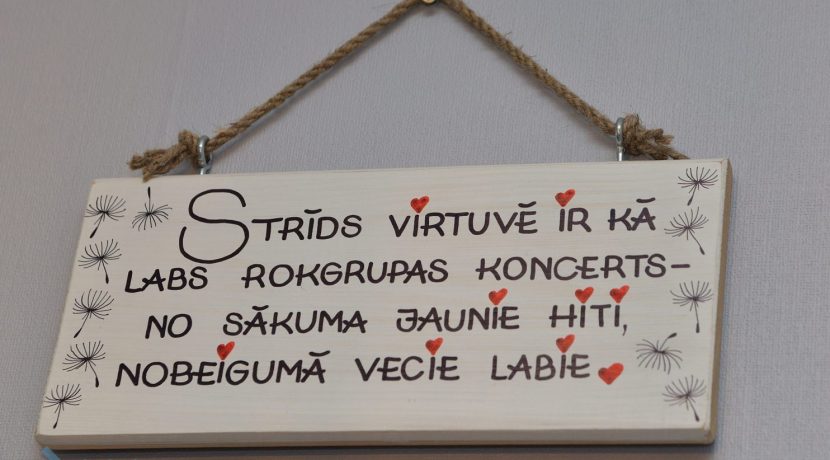 STRĪDS VIRTUVĒ IR KĀ
LABS ROKGRUPAS KONCERTS-
NO SĀKUMA JAUNIE HITI,
NOBEIGUMĀ VECIE LABIE